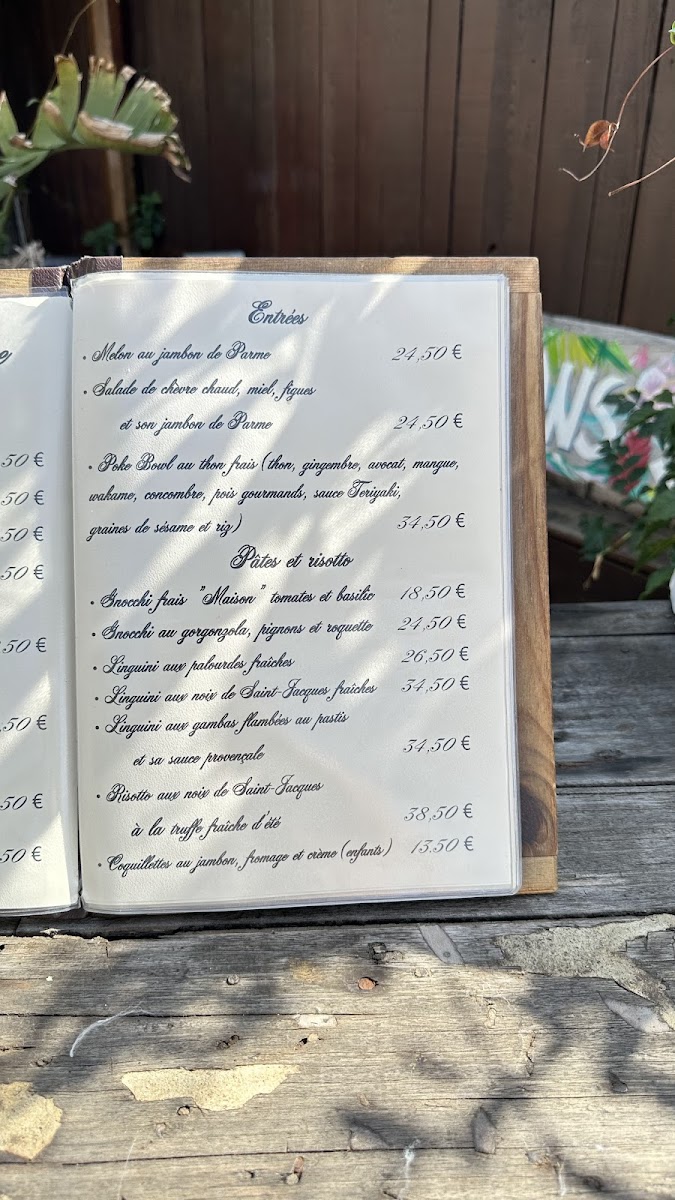 ,50 €
,50 €
,50 €
,50 €
,50 €
,50 €
,50 €
,50 €
Entrées
• Melon au jambon de Parme 24,50 €
• Salade de chèvre chaud, miel, figues
et son jambon de Parme 24,50 €
• Poke Bowl au thon frais (thon, gingembre, avocat, mangue,
wakame, concombre, pois gourmands, sauce Teriyaki,
graines de sésame et riz) 34,50 €
Pâtes et risotto
• Gnocchi frais "Maison" tomates et basilic 18,50 €
• Gnocchi au gorgonzola, pignons et roquette 24,50 €
• Linguini aux palourdes fraîches 26,50 €
• Linguini aux noix de Saint-Jacques fraîches 34,50 €
• Linguini aux gambas flambées au pastis
et sa sauce provençale 34,50 €
• Risotto aux noix de Saint-Jacques
à la truffe fraîche d'été 38,50 €
• Coquillettes au jambon, fromage et crème (enfants) 13,50 €